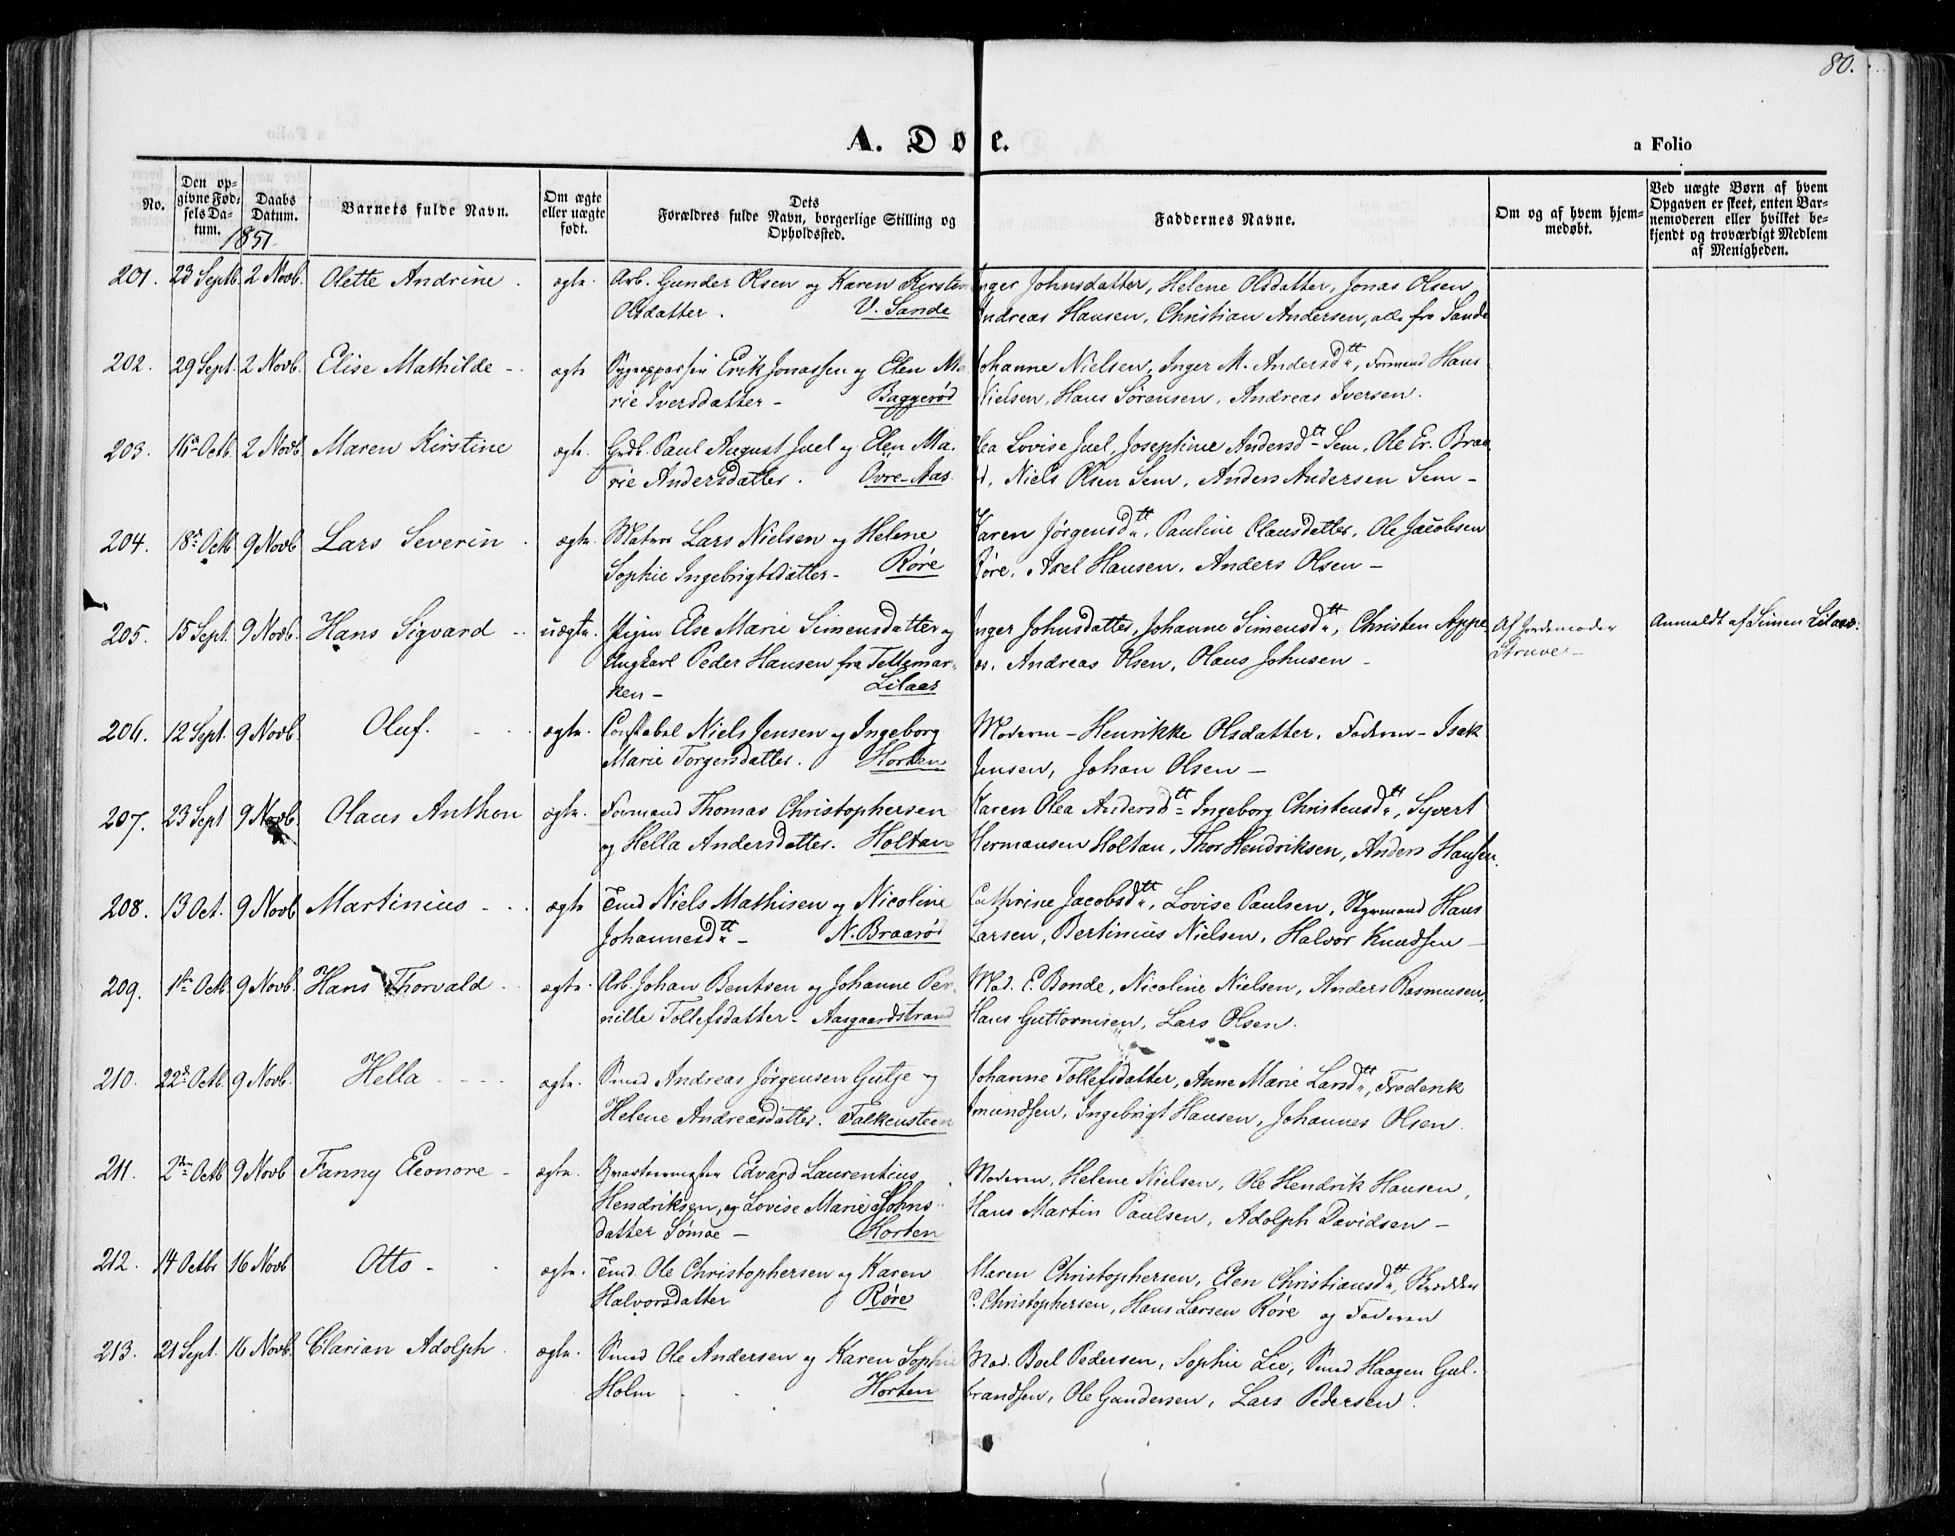 80.
A. Døe.
a Folio
No.
Den op-
givne Fød-
sels Da-
tum.
Daabs
Datum.
Barnets fulde Navn.
Om ægte
eller uægte
født.
Dets
Forældres fulde Navn, borgerlige Stilling og
Opholdssted.
Faddernes Navne.
Om og af hvem hjem-
medøbt.
Ved uægte Børn af hvem
Opgaven er skeet, enten Bar-
nemoderen eller hvilket be-
kjendt og troværdigt Medlem
af Menigheden.
1851
201. 23 Septb. 2 Novb. Olette Andrine. ægte. Arb. Gunder Olsen og Karen Kirstin Inger Johnsdatter, Helene Olsdatter, Jonas Olsen
Olsdatter. V. Sande Andreas Hansen, Christian Andersen, alle fra Sande
202. 29 Sept. 2 Novb. Elise Mathilde - ægte Erik Jonassen og Elen Ma Johanne Nielsen, Inger M. Andersdtt, Formand Hans
rie Iversdatter - Baggerød Nielsen, Hans Sørensen, Andreas Iversen.
203. 16 Octb. 2 Novb. Maren Kirstine ægte. Grdb. Paul August Juel og Elen Ma- Lovise Juel, Josephine Andersdtt Sem, Ole Er. Braa
rie Andersdatter. Øvre-Aas. Niels Olsen Sem, Anders Andersen Sem -
204. 18 Octb. 9 Novb Lars Severin. ægte. Matros Lars Nielsen og Helene Karen Jørgensdtt, Pauline Clausdatter, Ole Jacobsen
Sophie Ingebrigtsdatter - Røre Røre, Axel Hansen, Anders Olsen -
205. 15 Sept. 9 Novb. Hans Sigvard - uægte. Pigen Else Marie Simensdatter og Inger Johnsdatter, Johanne Simensdtt, Christen Appe Af Jordemoder Anmeldt af Simen Lilaas.
Ungkarl Peder Hansen fra Tellemar- Andreas Olsen, Olaus Johnsen - Struve -
ken - Lilaas
206. 12 Sept. 9 Novb. Oluf. ægte. Constabel Niels Jensen og Ingeborg Moderen - Henrikke Olsdatter, Faderen - Isak
Marie Torgersdatter. Horten Jensen, Johan Olsen -
207. 23 Sept 9 Novb. Olaus Anthon ægte. Formand Thomas Christophersen Karen Olea Andersdtt Ingeborg Christensdtt, Syvert
og Hella Andersdatter. Holtan Hermansen Holtan, Thor Hendriksen, Anders Hansen.
208. 13 Oct. 9 Novb Martinius - ægte Tmd Niels Mathisen og Nicoline Cathrine Jacobsdtt, Lovise Paulsen, Styrmand Hans
Johannesdtt - N. Braarød Larsen, Bertinius Nielsen, Halvor Knudsen -
209. 1ste Octb. 9 Novb. Hans Thorvald ægte. Arb. Johan Bentsen og Johanne Per- Mad. E. Bonde, Nicoline Nielsen, Anders Rasmussen,
nille Tollefsdatter - Aasgaardstrand Hans Guttormsen, Lars Olsen.
210. 22d Octb. 9 Novb. Hella - ægte. Smed Andreas Jørgensen Gutje og Johanne Tollefsdatter, Anne Marie Larsdtt, Frederik
Helene Andreasdatter. Falkensteen Amundsen, Ingebrigt Hansen, Johannes Olsen.
211. 2den Octb 9 Novb Fanny Eleonore - ægte. Qvarteermester Edvard Laurentius Moderen, Helene Nielsen, Ole Hendrik Hansen,
Hendriksen, og Lovise Marie Johns- Hans Martin Paulsen, Adolph Davidsen -
datter Sømoe - Horten
212. 14 Octbr 16 Novb Otto - ægte. Tmd. Ole Christophersen og Karen Maren Christophersen, Elen Christiansdtt, Skrædder
Halvorsdatter Røre C. Christophersen, Hans Larsen Røre og Faderen
213. 21 Sept. 16 Novb. Clarian Adolph. ægte. Smed Ole Andersen og Karen Sophie Mad. Boel Pedersen, Sophie Lie, Smed Haagen Gul-
Holm Horten brandsen, Ole Gundersen, Lars Pedersen.